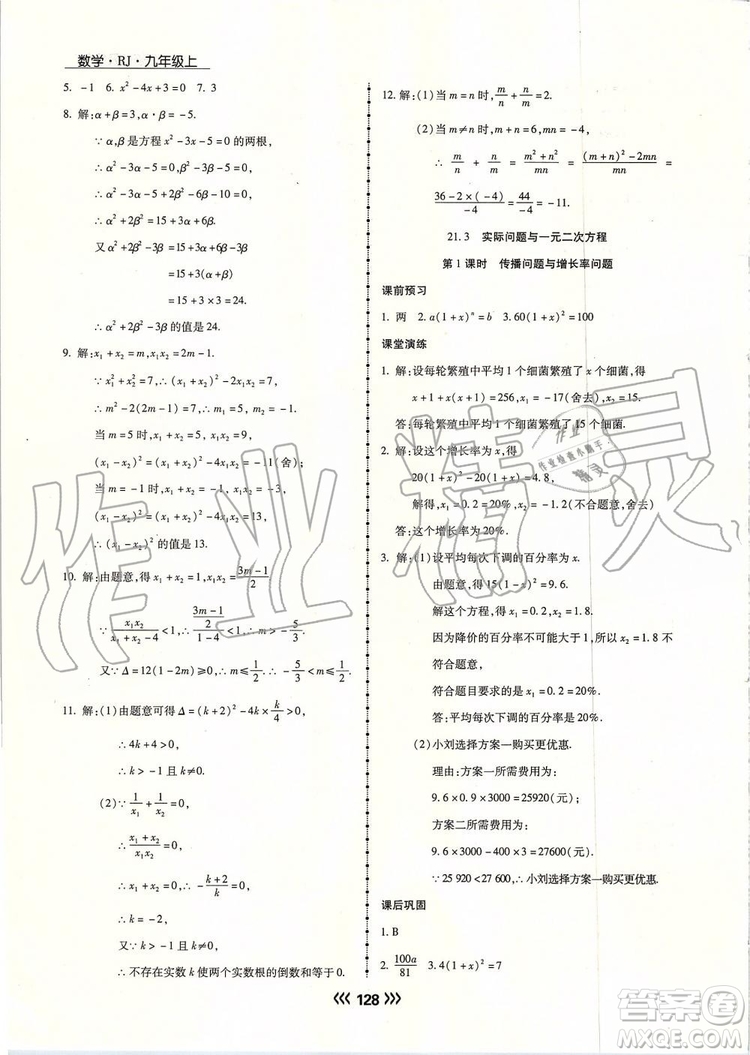 数学·RJ·九年级上
5. -1 6. x²-4x+3=0 7. 3
8. 解:α+β=3,αβ=-5.
∵α,β是方程 x²-3x-5=0 的两根,
∴α²-3α-5=0,β²-3β-5=0.
∴α²-3α-5+2β²-6β-10=0.
∴α²+2β²=15+3α+6β.
又α²+2β²-3β=15+3α+3β
=15+3(α+β)
=15+3×3=24.
∴α²+2β²-3β的值是24.
9. 解:x₁+x₂=m,x₁x₂=2m-1.
∵x₁²+x₂²=7,∴(x₁+x₂)²-2x₁x₂=7,
∴m²-2(2m-1)=7,∴m=5或m=-1.
当 m=5 时,x₁+x₂=5,x₁x₂=9,
(x₁-x₂)²=(x₁+x₂)²-4x₁x₂=-11(舍);
当 m=-1 时,x₁+x₂=-1,x₁x₂=-3,
(x₁-x₂)²=(x₁+x₂)²-4x₁x₂=13.
∴(x₁-x₂)²的值是13.
10. 解:由题意,得 x₁+x₂=1,x₁x₂=(3m-1)/2
∵x₁x₂/(x₁+x₂-4)<1,∴((3m-1)/2)/(1-4)<1,∴m>-5/3.
又∵Δ=12(1-2m)≥0,∴m≤1/2.∴-5/3<m≤1/2.
11. 解:(1)由题意可得 Δ=(k+2)²-4k×k/4>0,
∴4k+4>0,
∴k>-1 且 k≠0.
(2)∵1/x₁+1/x₂=0,
∴(x₁+x₂)/(x₁x₂)=0,
∴x₁+x₂=0,
∴-(k+2)/k=0,
∴k=-2,
又∵k>-1 且 k≠0.
∴不存在实数k使两个实数根的倒数和等于0.
12. 解:(1)当 m=n 时,m/n+n/m=2.
(2)当 m≠n 时,m+n=6,mn=-4,
∴m/n+n/m=(m²+n²)/mn=((m+n)²-2mn)/mn=
(36-2×(-4))/-4=44/-4=-11.
21.3 实际问题与一元二次方程
第1课时 传播问题与增长率问题
课前预习
1. 两 2. a(1+x)ⁿ=b 3. 60(1+x)²=100
课堂演练
1. 解:设每轮繁殖中平均1个细菌繁殖了x个细菌,得
x+1+x(x+1)=256,x₁=-17(舍去),x₂=15.
答:每轮繁殖中平均1个细菌繁殖了15个细菌.
2. 解:设这个增长率为x,得
20(1+x)²-20(1+x)=4.8,
解得,x₁=0.2=20%,x₂=-1.2(不合题意,舍去)
答:这个增长率为20%.
3. 解:(1)设平均每次下调的百分率为x.
由题意,得15(1-x)²=9.6.
解这个方程,得x₁=0.2,x₂=1.8.
因为降价的百分率不可能大于1,所以x₂=1.8不
符合题意,
符合题目要求的是x₁=0.2=20%.
答:平均每次下调的百分率为20%.
(2)小刘选择方案一购买更优惠.
理由:方案一所需费用为:
9.6×0.9×3000=25920(元);
方案二所需费用为:
9.6×3000-400×3=27600(元).
∵25 920<27 600,∴小刘选择方案一购买更优惠.
课后巩固
1. B
2. 100a/81 3. 4(1+x)²=7
128
作业精灵
作业精灵
答案圈
MXQE.COM